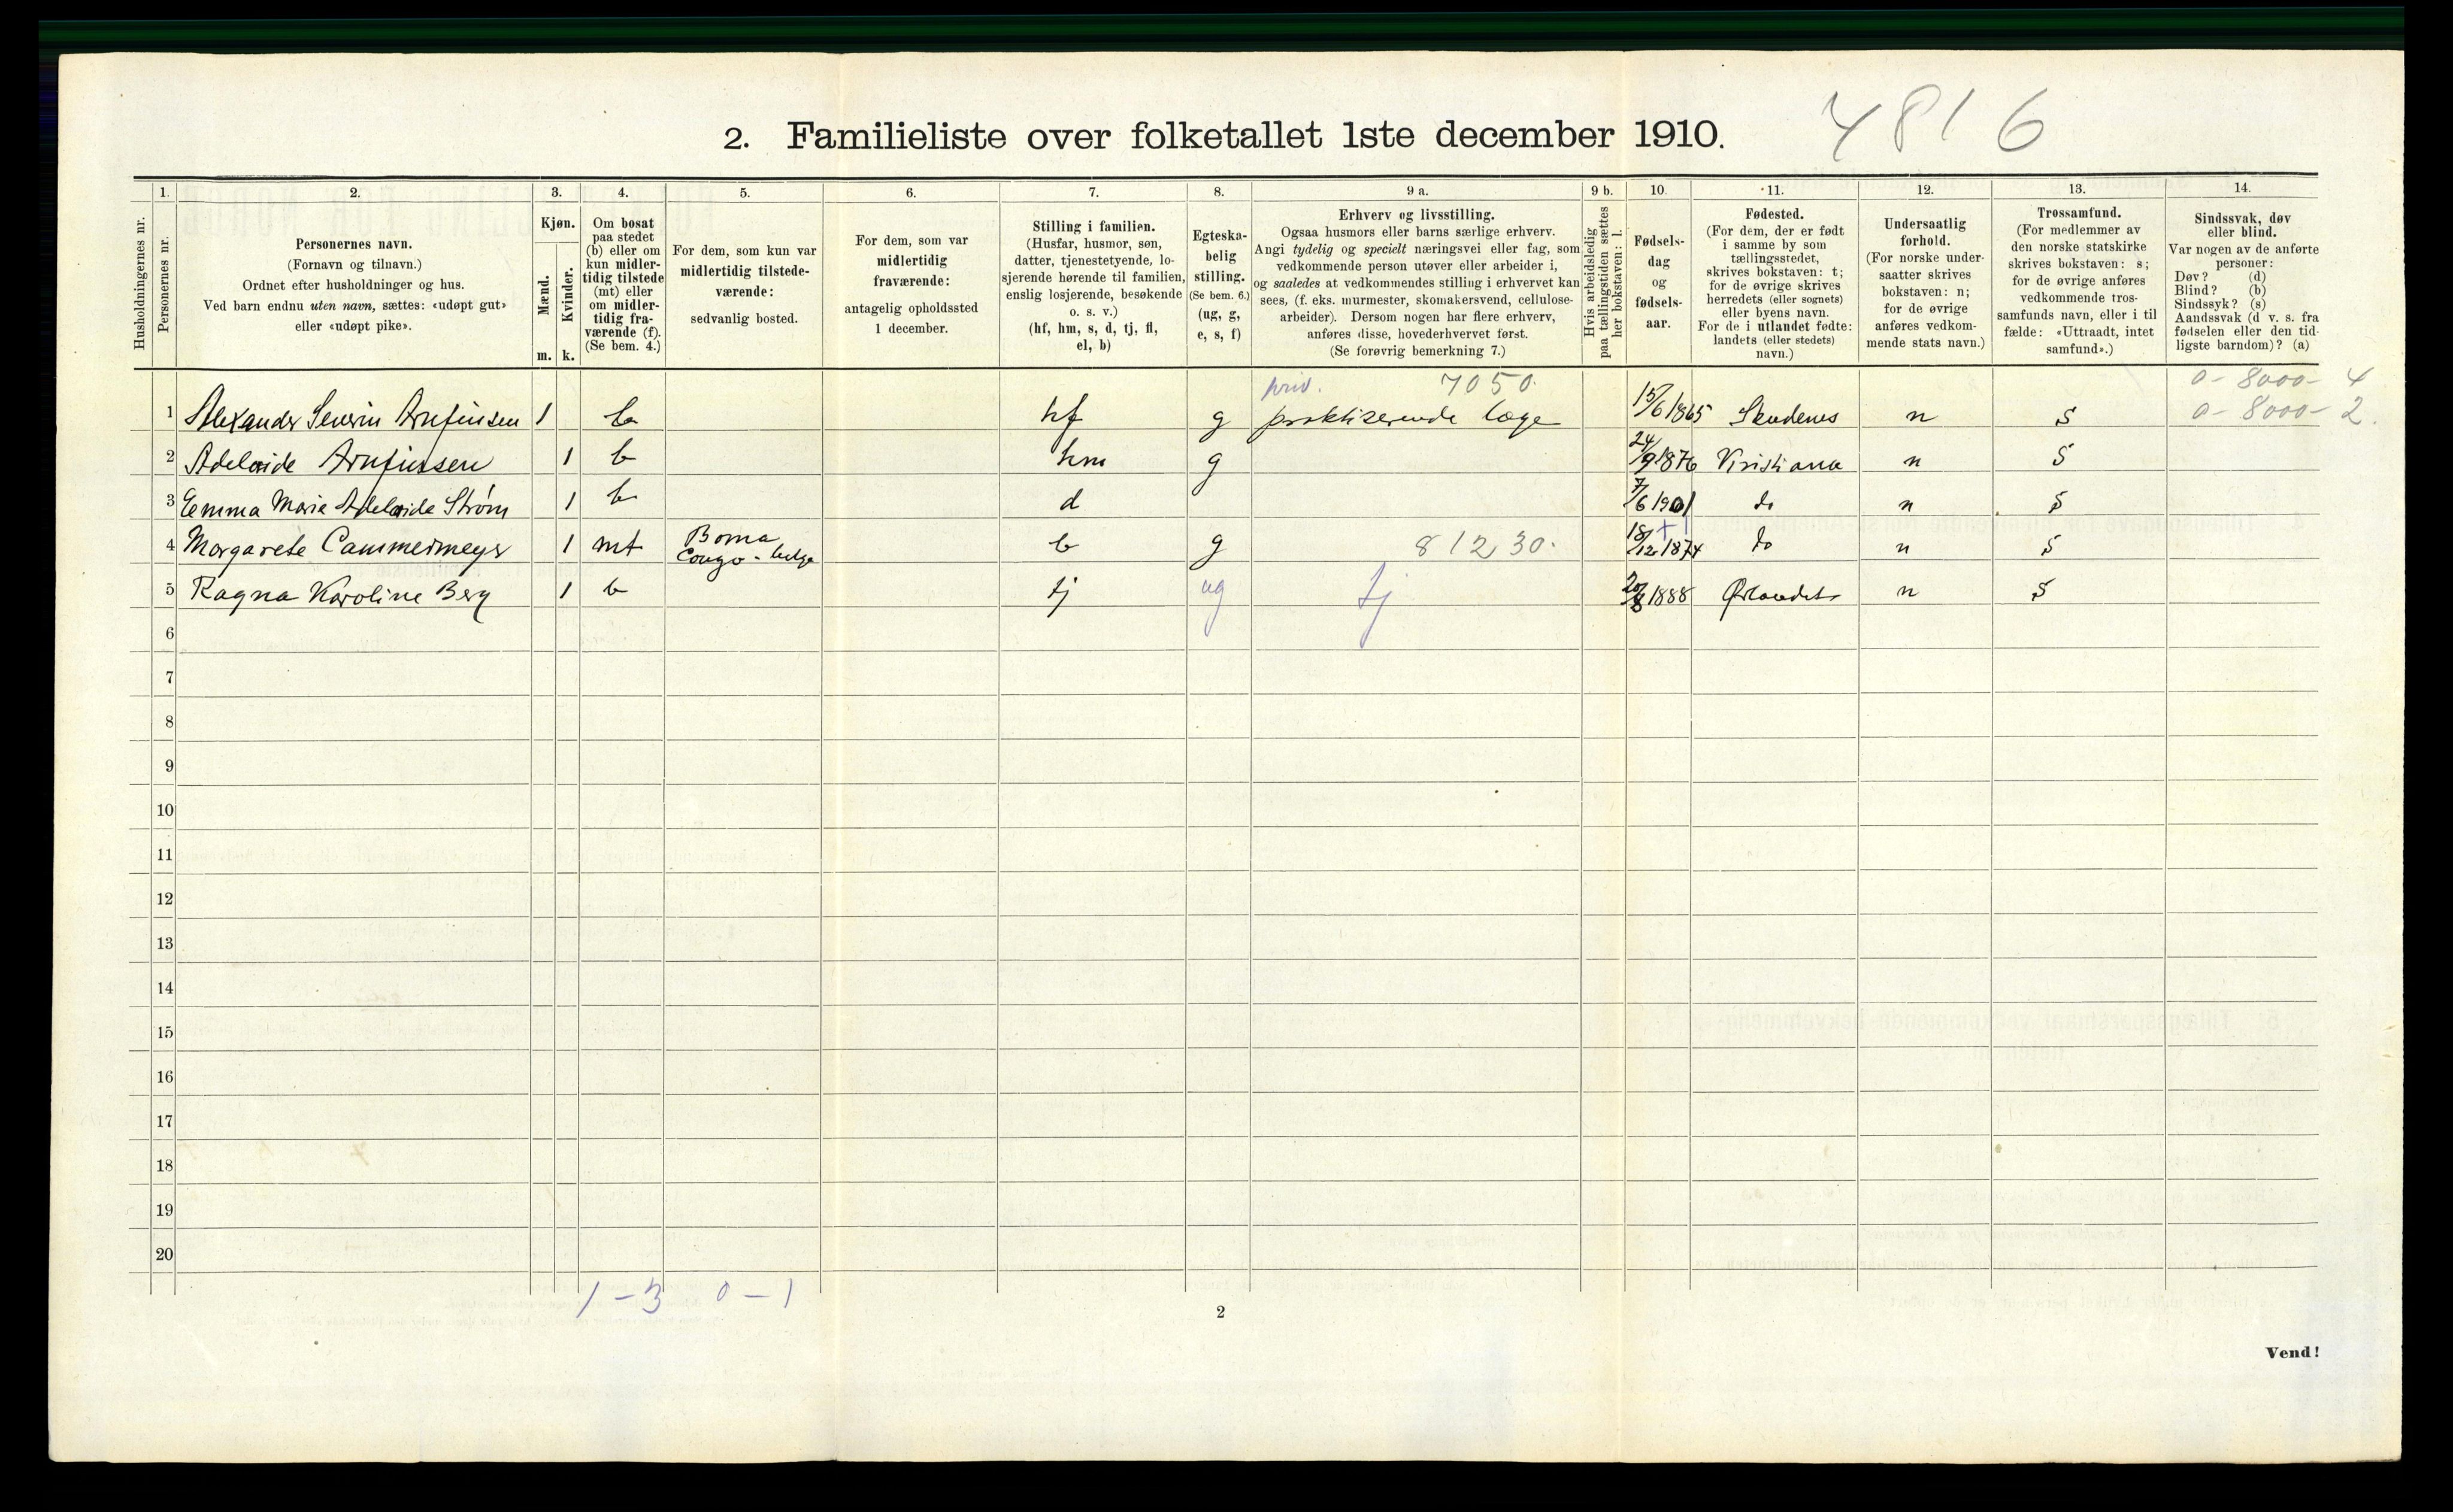 2. Familieliste over folketallet 1ste december 1910.
4816
Husholdningernes nr.
1.
Personernes nr.
2.
Personernes navn.
(Fornavn og tilnavn.)
Ordnet efter husholdninger og hus.
Ved barn endnu uten navn, sættes: «udøpt gut»
eller «udøpt pike».
3.
Kjøn.
Mænd.
Kvinder.
m. k.
4.
Om bosat
paa stedet
(b) eller om
kun midler-
tidig tilstede
(mt) eller
om midler-
tidig fra-
værende (f).
(Se bem. 4.)
5.
For dem, som kun var
midlertidig tilstede-
værende:
sedvanlig bosted.
6.
For dem, som var
midlertidig
fraværende:
antagelig opholdssted
1 december.
7.
Stilling i familien.
(Husfar, husmor, søn,
datter, tjenestetyende, lo-
sjerende hørende til familien,
enslig losjerende, besøkende
o. s. v.)
(hf, hm, s, d, tj, fl,
el, b)
8.
Egteska-
belig
stilling.
(Se bem. 6.)
(ug, g,
e, s, f)
9 a.
Erhverv og livsstilling.
Ogsaa husmors eller barns særlige erhverv.
Angi tydelig og specielt næringsvei eller fag, som
vedkommende person utøver eller arbeider i,
og saaledes at vedkommendes stilling i erhvervet kan
sees, (f. eks. murmester, skomakersvend, cellulose-
arbeider). Dersom nogen har flere erhverv,
anføres disse, hovederhvervet først.
(Se forøvrig bemerkning 7.)
9 b.
Hvis arbeidsledig
paa tællingstiden sættes
her bokstaven: l.
10.
Fødsels-
dag
og
fødsels-
aar.
11.
Fødested.
(For dem, der er født
i samme by som
tællingsstedet,
skrives bokstaven: t;
for de øvrige skrives
herredets (eller sognets)
eller byens navn.
For de i utlandet fødte:
landets (eller stedets)
navn.)
12.
Undersaatlig
forhold.
(For norske under-
saatter skrives
bokstaven: n;
for de øvrige
anføres vedkom-
mende stats navn.)
13.
Trossamfund.
(For medlemmer av
den norske statskirke
skrives bokstaven: s;
for de øvrige anføres
vedkommende tros-
samfunds navn, eller i til
fælde: «Uttraadt, intet
samfund».)
14.
Sindssvak, døv
eller blind.
Var nogen av de anførte
personer:
Døv? (d)
Blind? (b)
Sindssyk? (s)
Aandssvak (d v. s. fra
fødselen eller den tid-
ligste barndom)? (a)
priv. 7050. 0 - 8000 - 4
1 Alexander Severin Arnfinsen 1 b hf g praktiserende læge 15/6 1865 Skudenes n s 0 - 8000 - 2.
2 Adelaide Arnfinsen 1 b hm g 24/9 1876 Kristiana n s
3 Emma Marie Adelaide Strøm 1 b d 7/6 1901 do n s
4 Margarete Cammermeyer 1 mt Boma
Congo - belge b g 81230. 18/12 1874 do n s
5 Ragna Karoline Berg 1 b tj ug tj 1888 Ørlandet n s
6
7
8
9
10
11
12
13
14
15
16
17
18
19
20
1 - 3 0 - 1
2
Vend!